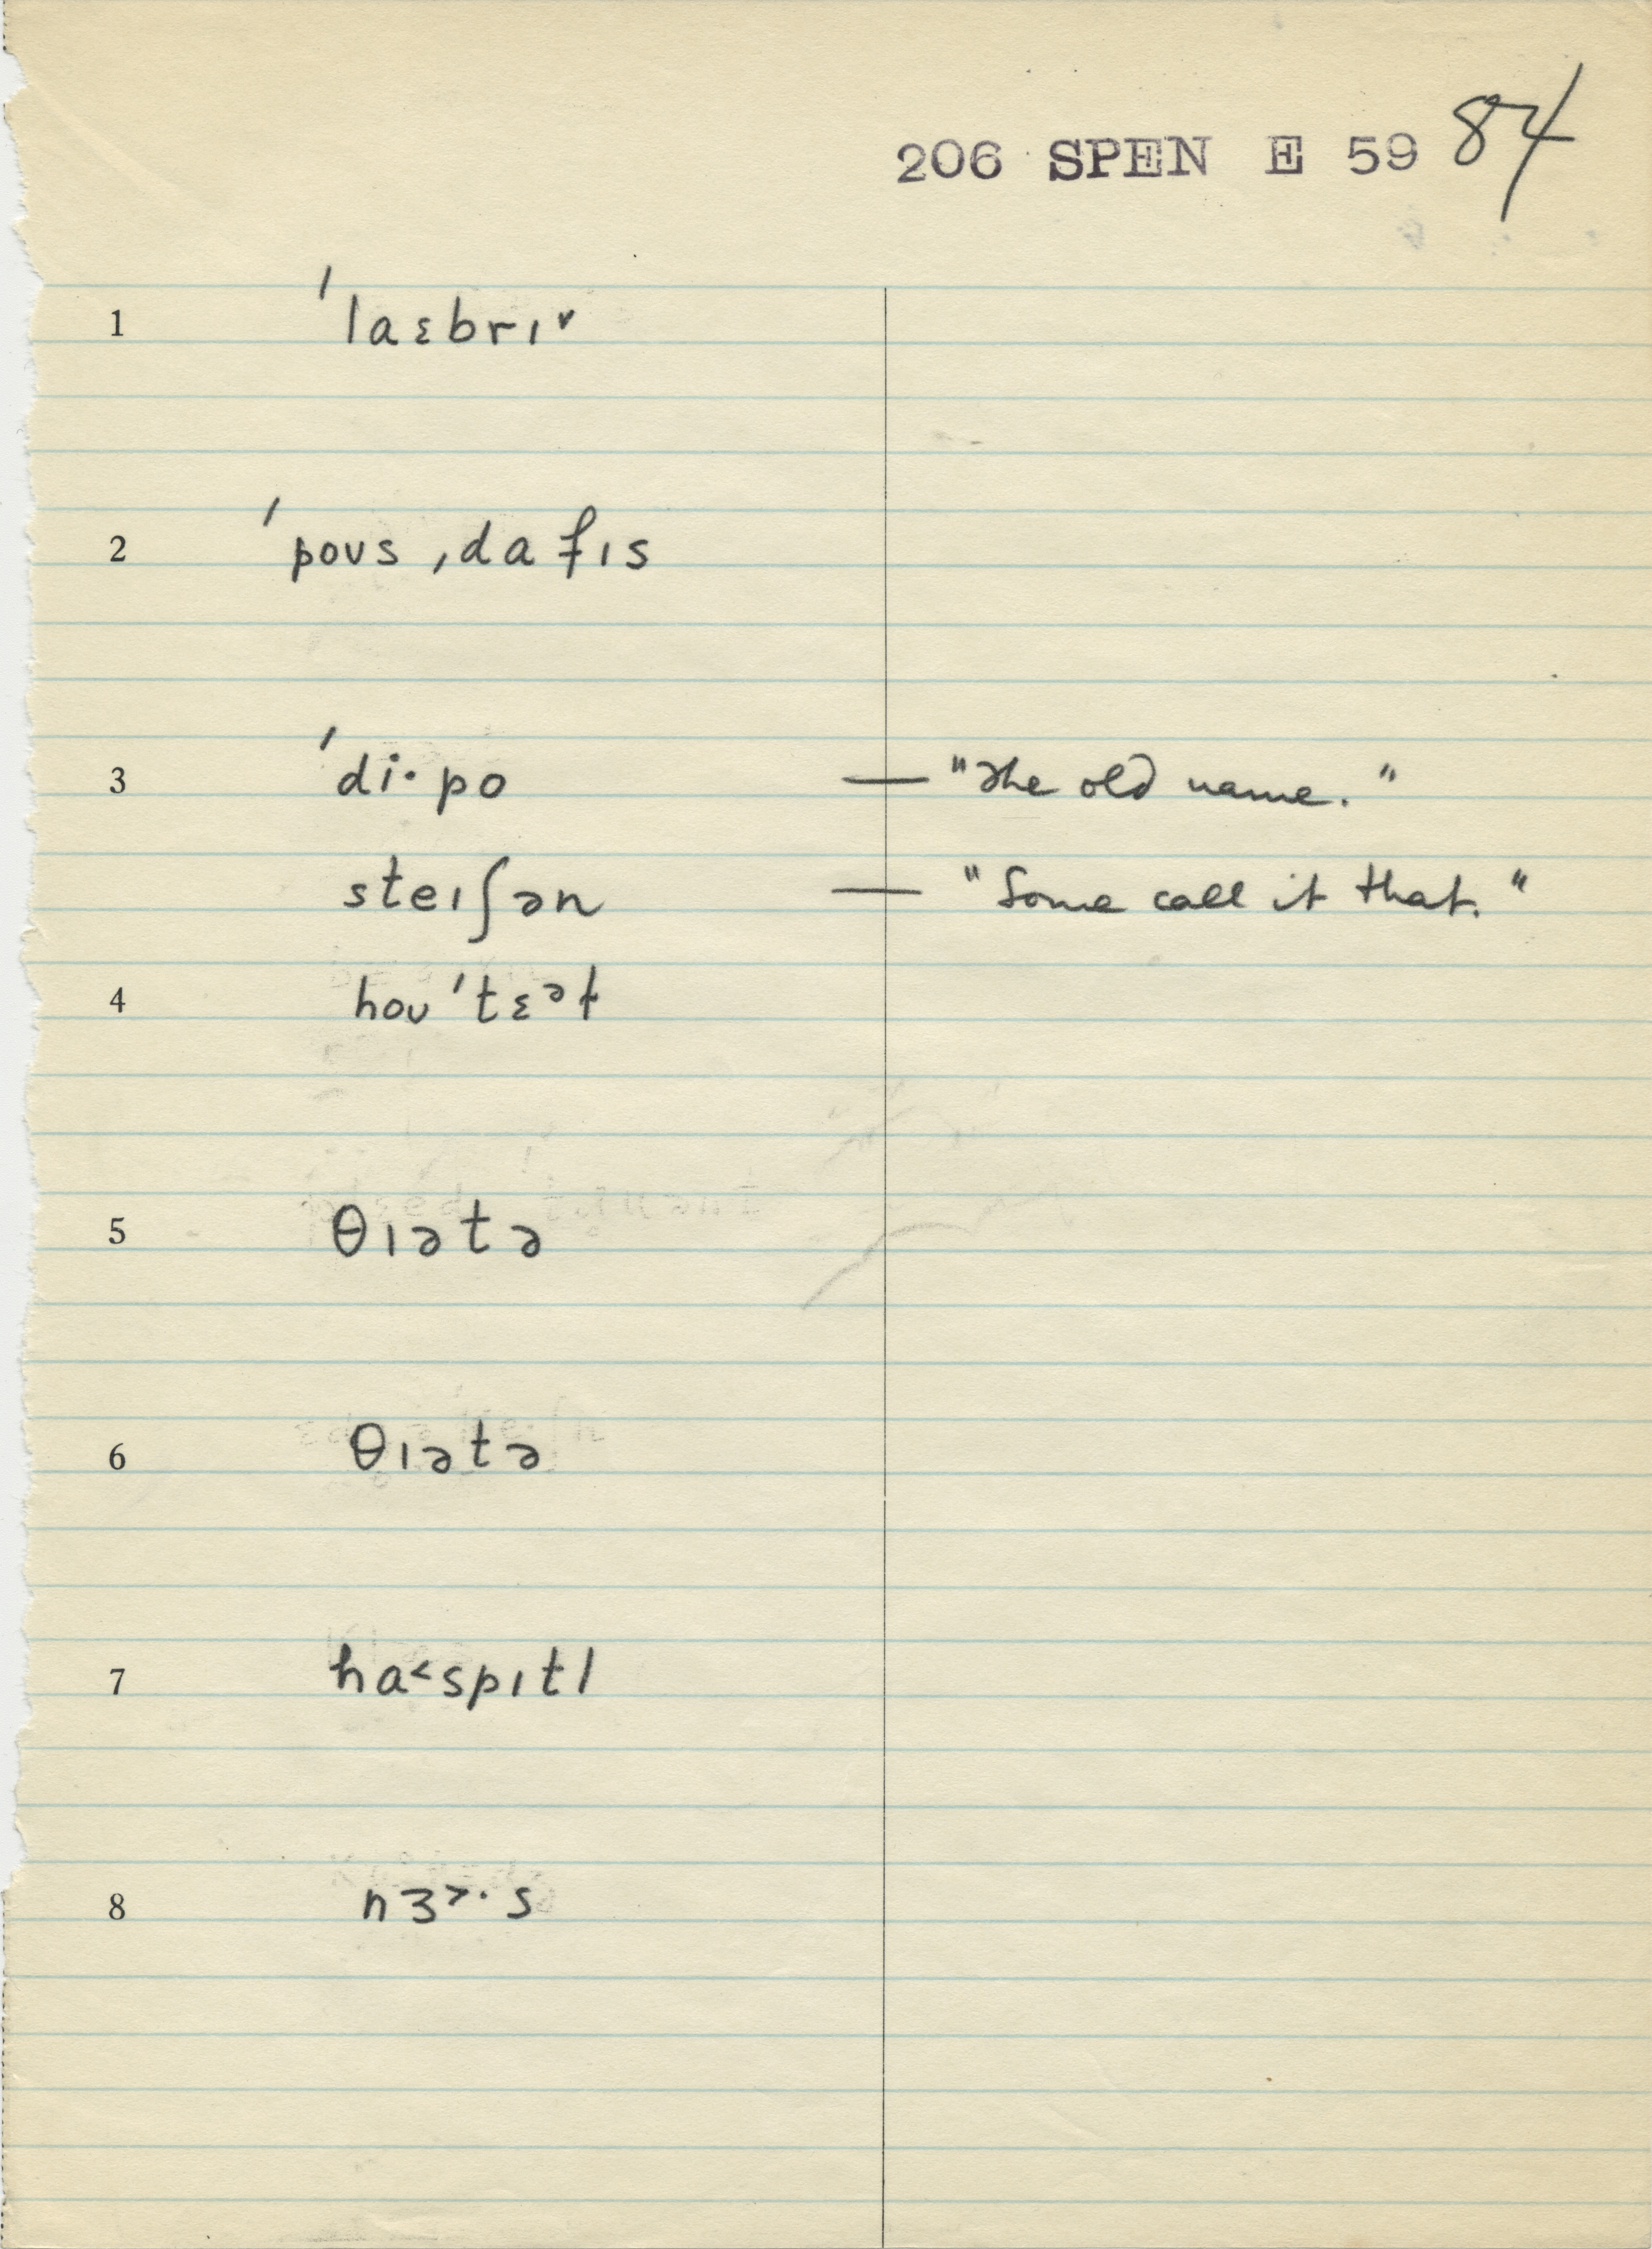 206 SPEN E 59 84
1 ˈlaɛbrɪ˅
2 ˈpoʊs ˌdaɟɪs
3 ˈdi·po — "The old name."
steɪʃən — "Some call it that."
4 hoʊˈtɛᵊɫ
5 θɪətə
6 θɪətə
7 ha˂spɪtl
8 nɜ˃·s